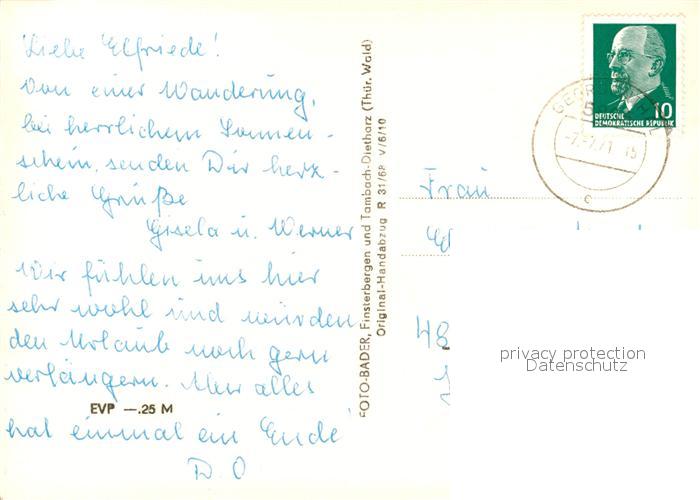 Liebe Elfriede!
Von einer Wanderung,
bei herrlichem Sonnen-
schein, senden Dir herz-
liche Grüße
Gisela u. Werner
Wir fühlen uns hier
sehr wohl und würden
den Urlaub noch gern
verlängern. Aber alles
EVP —.25 M
hat einmal ein Ende
D. O
FOTO-BADER, Finsterbergen und Tambach-Dietharz (Thür. Wald)
Original-Handabzug R 31/68 V/6/10
10
DEUTSCHE
DEMOKRATISCHE REPUBLIK
-7.-7.71 15
c
Frau
48
privacy protection
Datenschutz